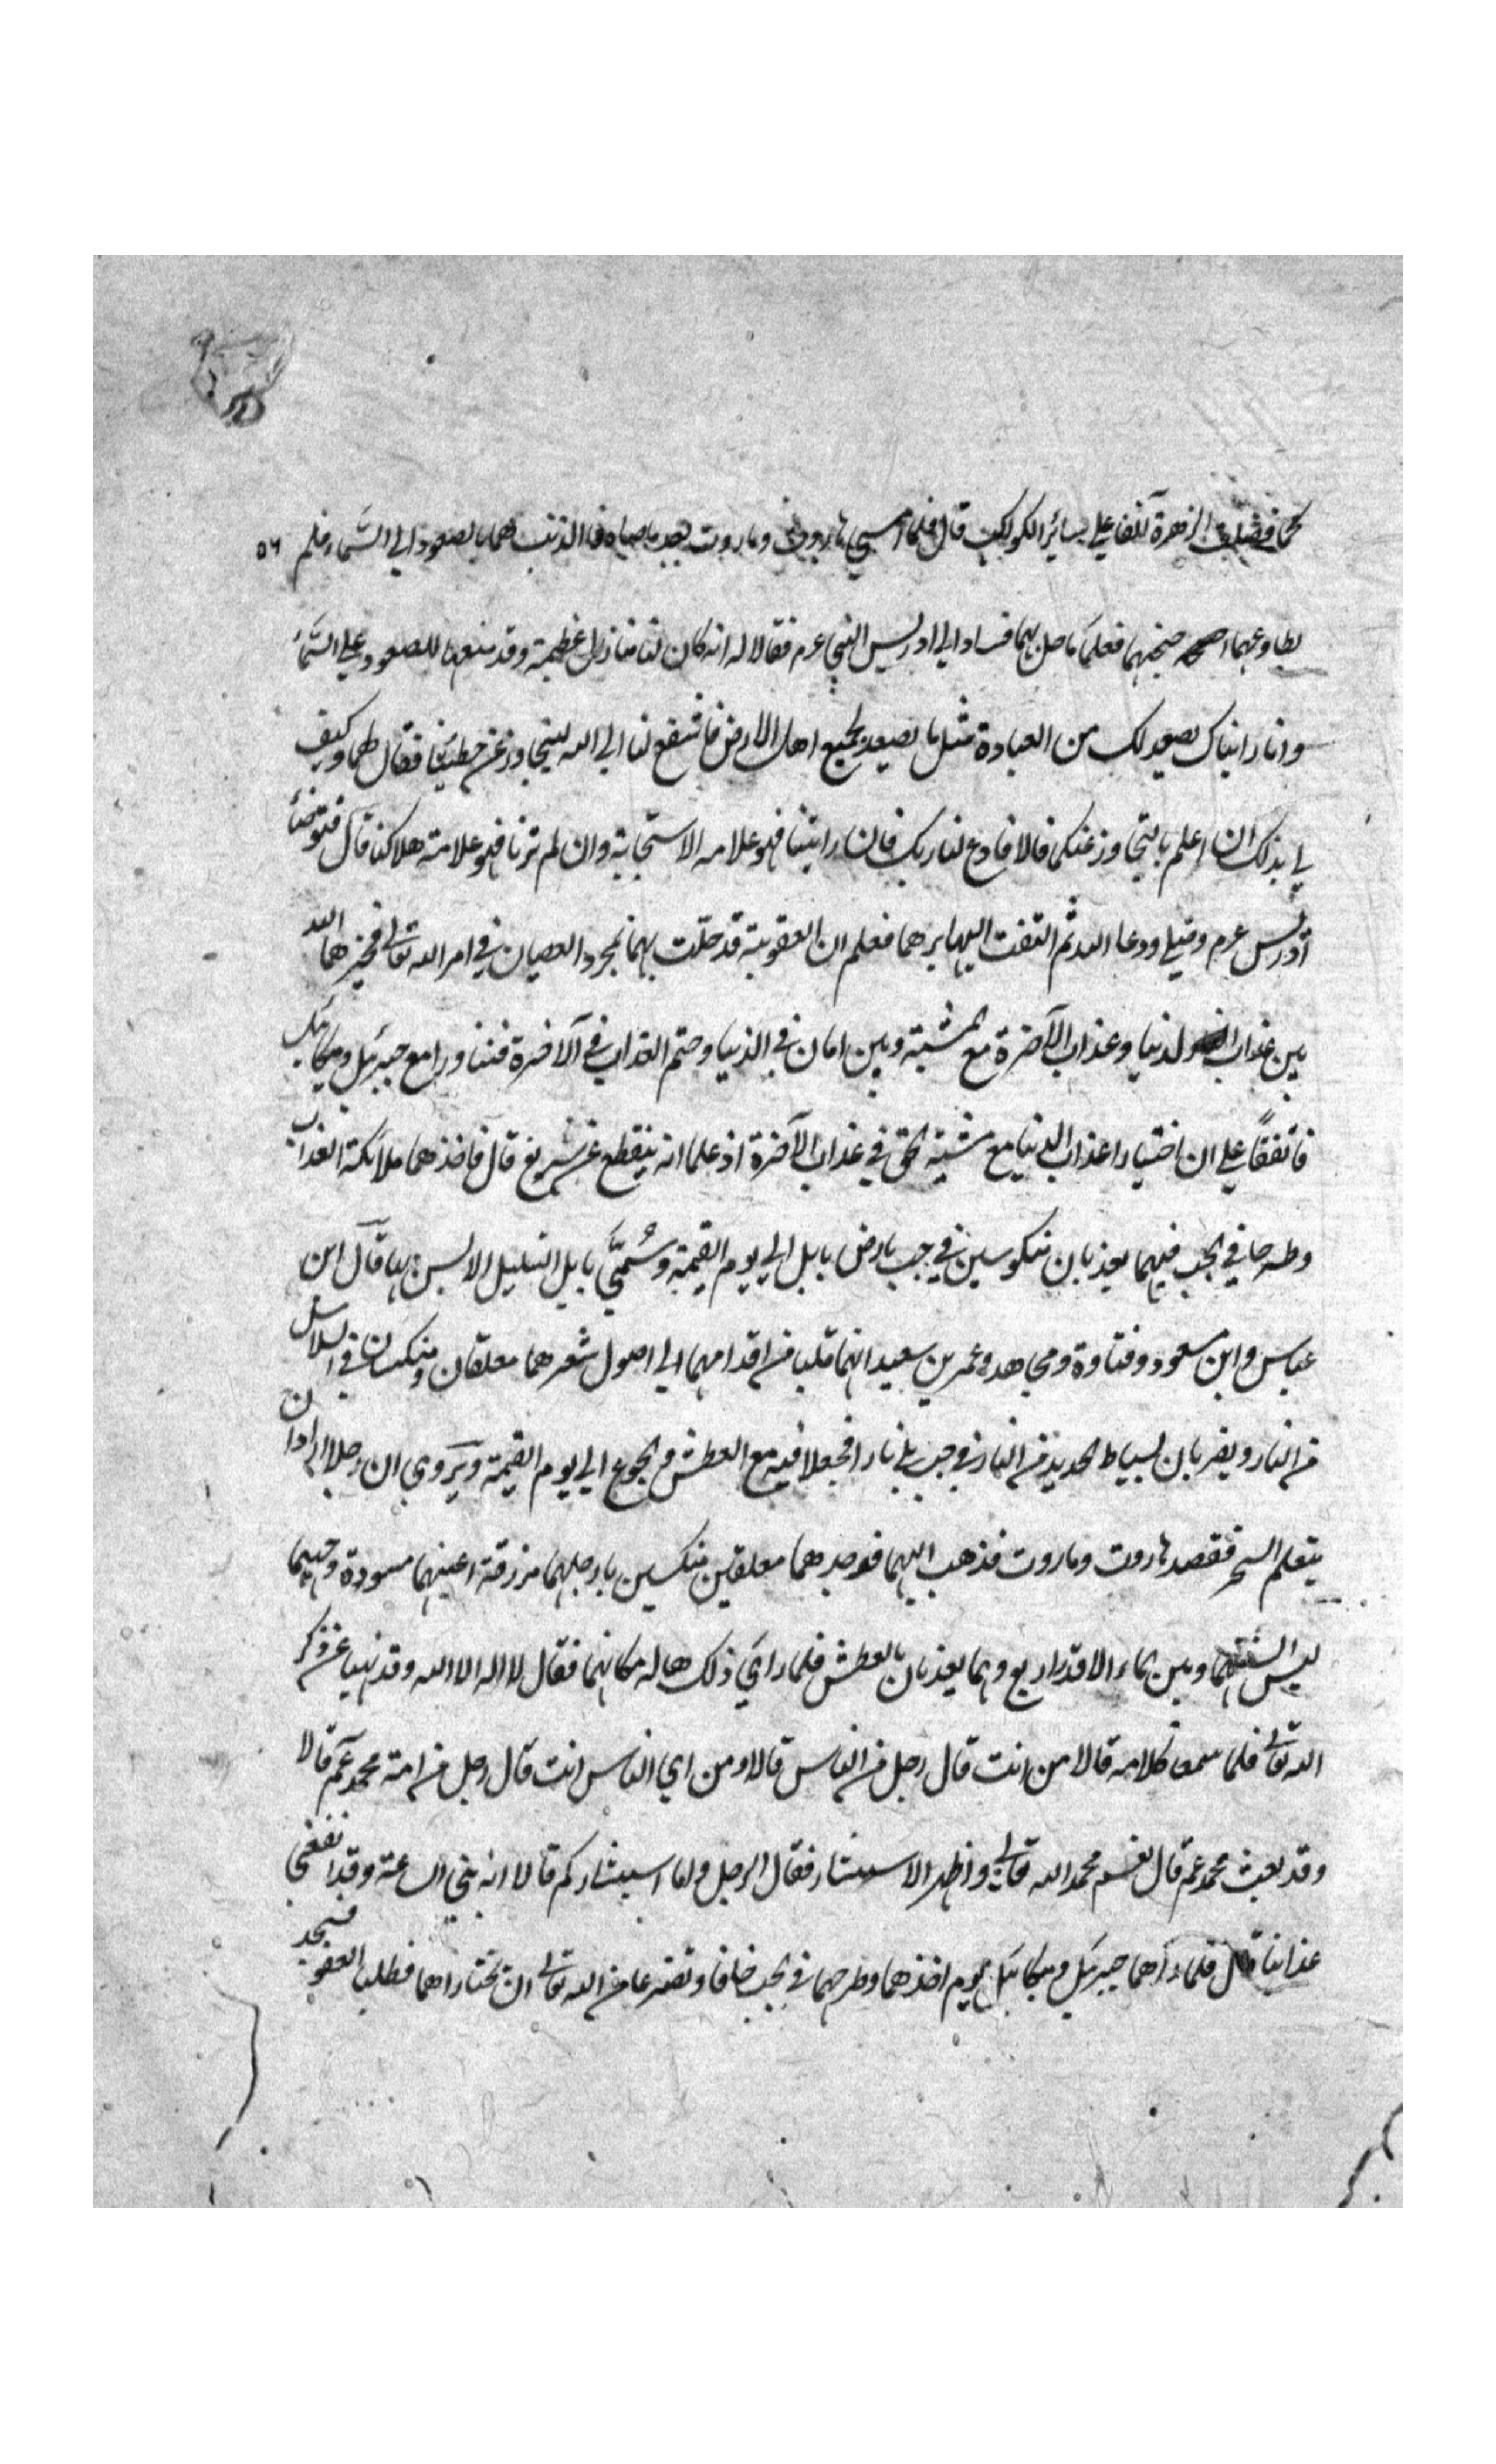 كما فضلت الزهرة آنفا علي سائر الكواكب قال فلما امسي هاروت وماروت بعد ما صاه فا الذنب هما بالصعود الي السماء فلم ٥٦
يطاوعهما اجنحتهما فعلما ما حل بهما قصدا الي ادريس النبي عرم فقالا له انه كان لنا منازل عظيمة وقد منعنا للصعود علي السماء
وانا رايناك يصعد لك من العبادة مثل ما يصعد لجميع اهل الارض فاشفع لنا الي الله ليتجاوز عن خطيتنا فقال لهما وكيف
لي بذلك ان اعلم بالتجاوز عنكما قالا فادع لنا ربك فان رايتنا فهو علامه الاستجابة وان لم ترنا فهو علامة هلاكنا قال فتوضأ
ادريس عرم وصلي ودعا الله ثم التفت اليهما يرهما فعلم ان العقوبة قد حلت بهما بمجرد العصيان في امر الله تعالي فخيرهما الله
بين عذاب الدنيا وعذاب الآخرة مع المشية وبين امان في الدنيا وحتم العذاب في الآخرة فتشاورا مع جبرئيل وميكائيل
فاتفقا علي ان اختيارا عذاب الدنيا مع مشية الحق في عذاب الآخرة اذ علما انه ينقطع عن سريع قال فاخذهما ملائكة العذاب
وطرحا في الجب فيهما يعذبان منكوسين في جب بارض بابل الي يوم القيمة وسُمّي بابل لتبليل الالسن بها قال ابن
عباس وابن مسعود وقتاوة ومجاهد وعمر بن سعيد انهما قلبا من اقدامهما الي اصول شعرهما معلقان ومنكسان في السلاسل
من النار ويضربان بسياط الحديد من النار في جب ملئ نارا فجعلا فيه مع العطش والجوع الي يوم القيمة ويروي ان رجلا اراد ان
يتعلم السحر فقصد هاروت وماروت فذهب اليهما فوجدهما معلقين منكسين بارجلهما مزرقة اعينهما مسودة وجههما
ليس السنتهما وبين الماء الا قدر اربع وهما يعذبان بالعطش فلما راي ذلك هاله مكانهما فقال لا اله الا الله وقد نهيا عن ذكر
الله تعالي فلما سمعا كلامه قالا من انت قال رجل من الناس قالا ومن اي الناس انت قال رجل من امة محمد عم قالا
وقد بعث محمد عم قال نعم محمد الله تعالي واظهرا الاستبشار فقال الرجل ولما استبشاركم قالا انه نبي الساعة وقد انقضي
عذابنا قال فلما رآهما جبرئيل وميكائيل يوم اخذهما وطرحهما في الجب خافا وتضرعا من الله تعالي ان يختاراهما فطلبا العفو فسجد